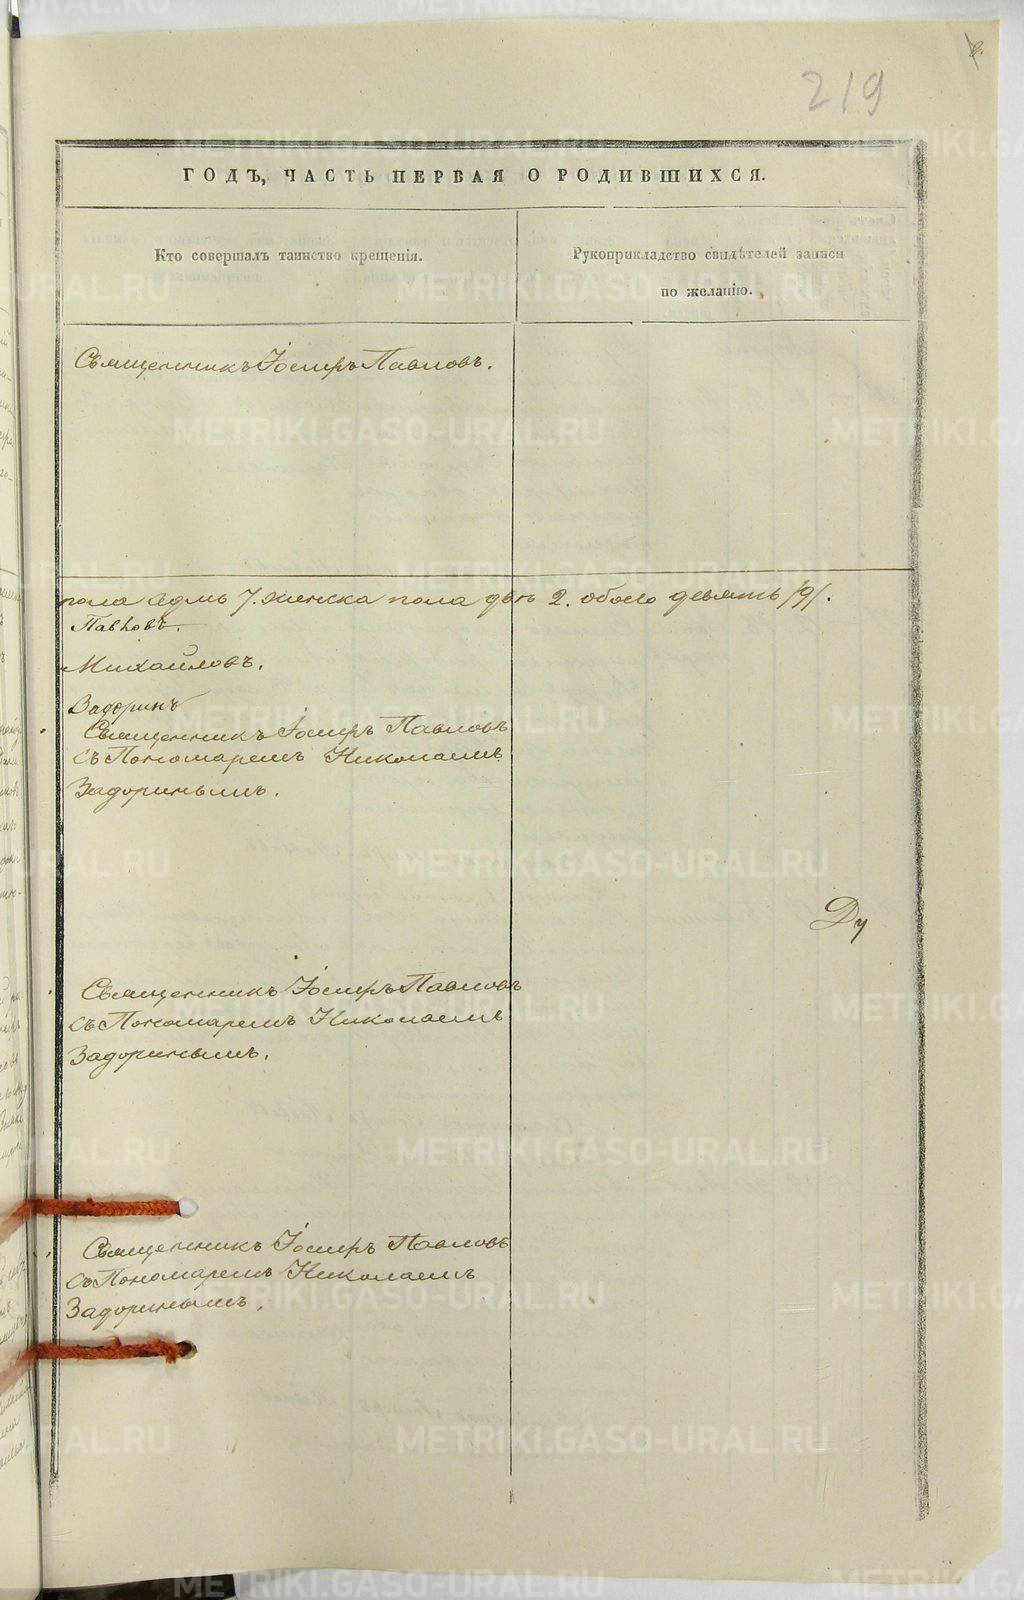 219
ГОДЪ, ЧАСТЬ ПЕРВАЯ О РОДИВШИХСЯ.
Кто совершалъ таинство крещенія.
Рукоприкладство свидѣтелей записи
по желанію.
Священникъ Іосифъ Павловъ.
пола седмь 7. женска пола двѣ 2. обоего девять /9/.
Павловъ.
Михайловъ.
Задоринъ
Священникъ Іосифъ Павловъ
съ Пономаремъ Николаемъ
Задоринымъ.
Ду
Священникъ Іосифъ Павловъ
съ Пономаремъ Николаемъ
Задоринымъ.
Священникъ Іосифъ Павловъ
съ Пономаремъ Николаемъ
Задоринымъ.
METRIKI.GASO-URAL.RU